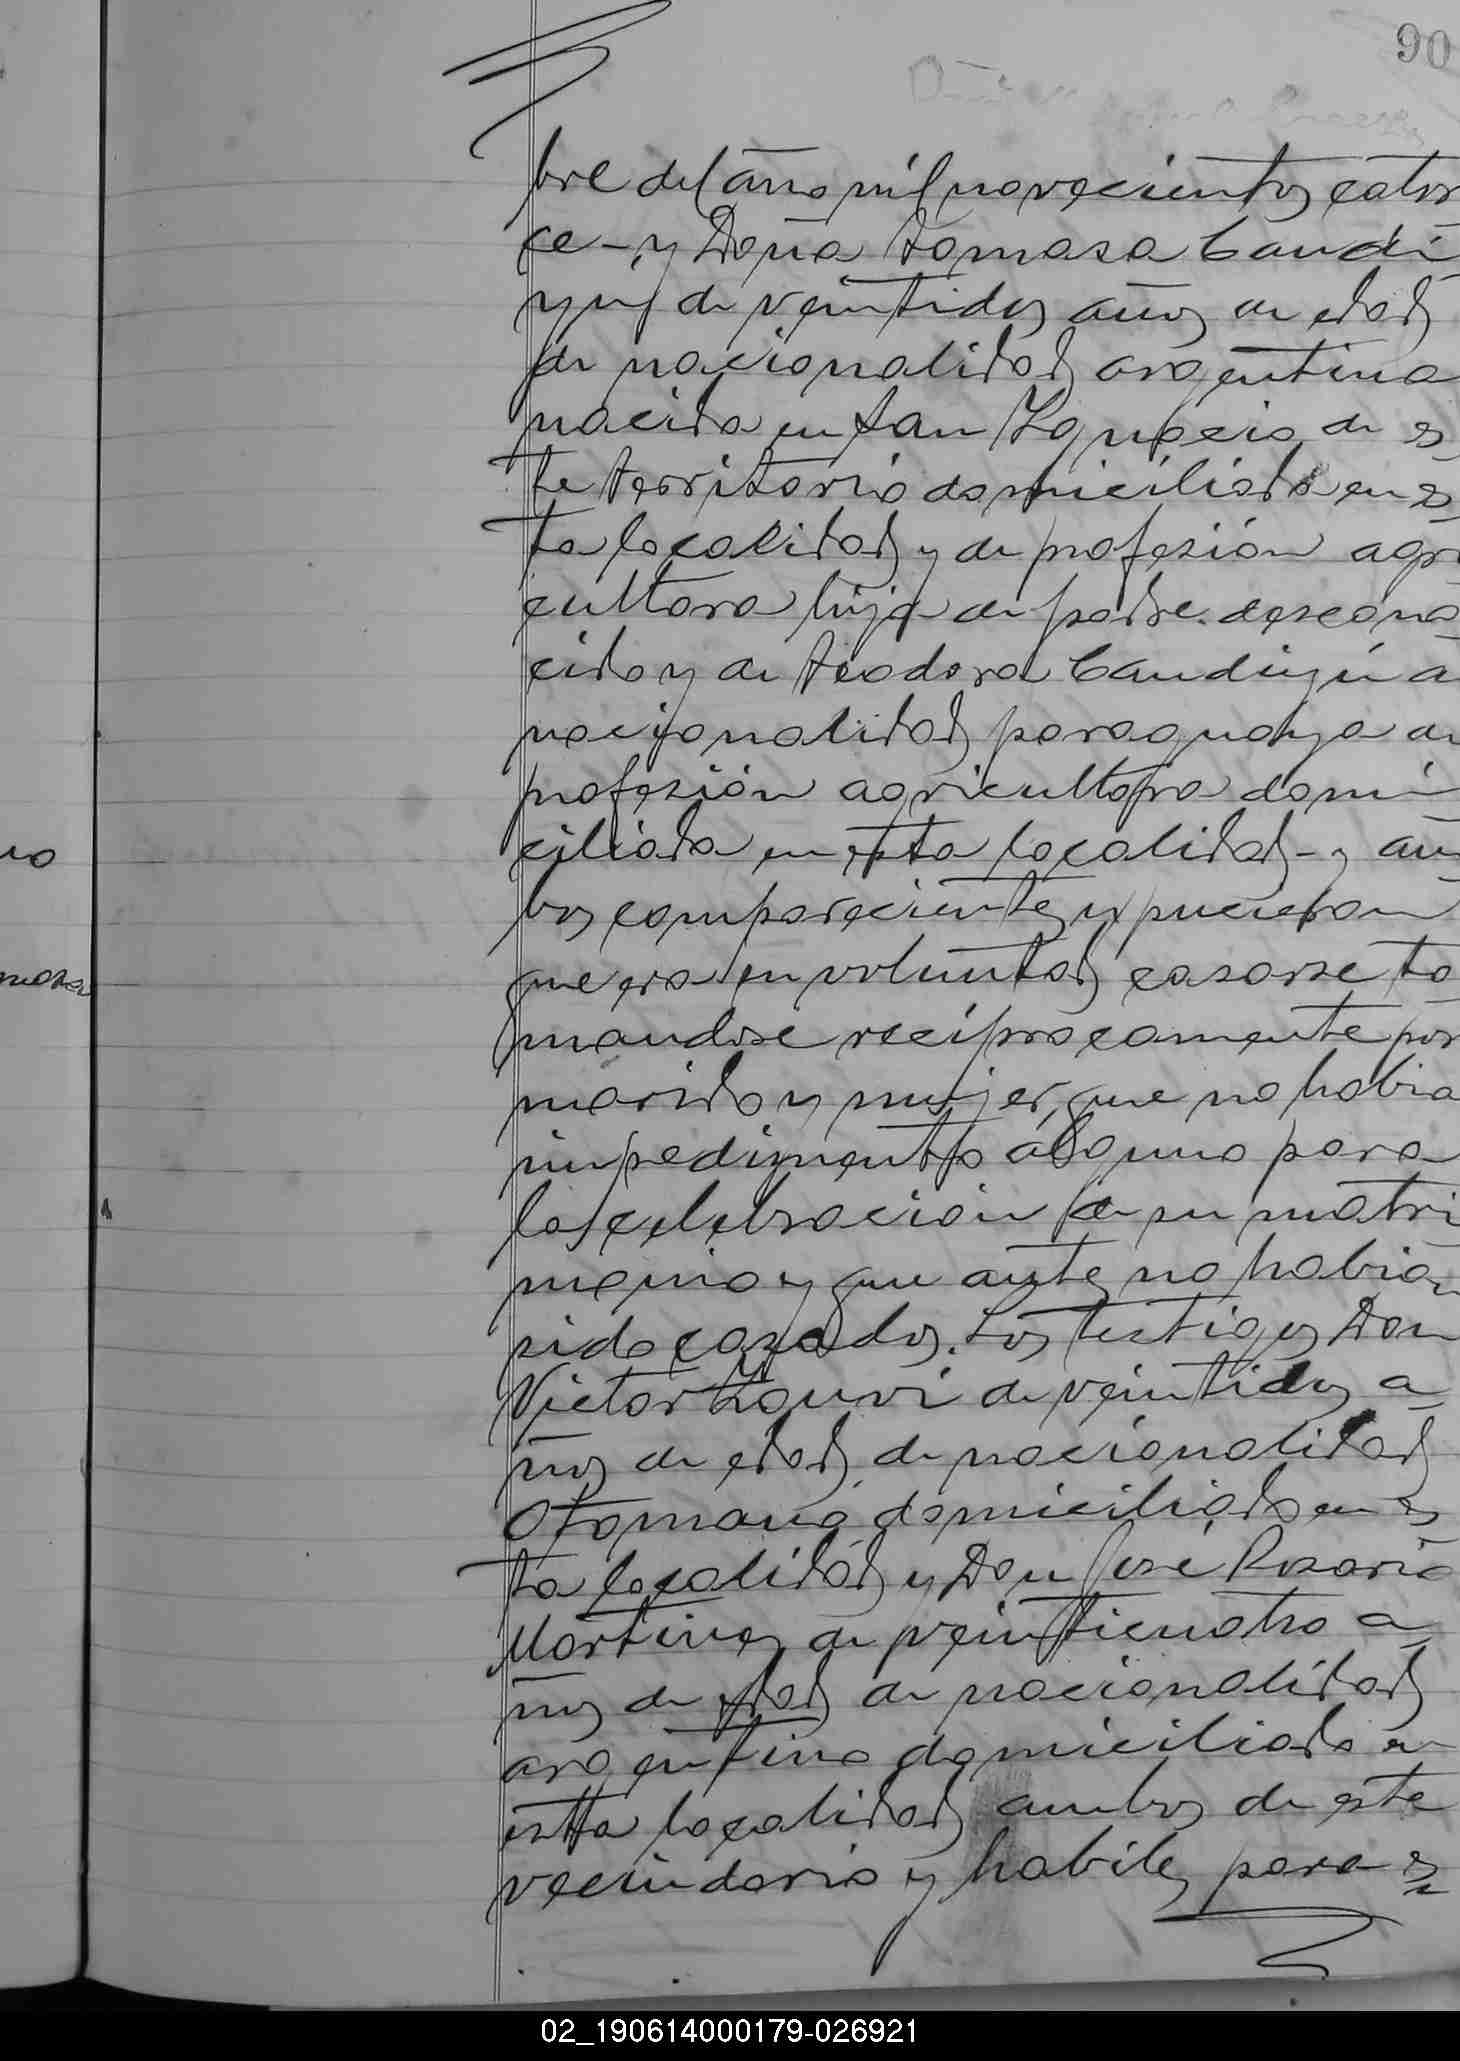 90
bre del año mil novecientos cator
ce - y Doña Tomasa Candi
yú de veintidos años de edad
de nacionalidad argentina
nacida en San Ygnacio de es
te territorio domiciliada en es
ta localidad y de profesión agri
cultora hija de padre descono
cido y de Teodora Candiyú de
nacionalidad paraguaya de
profesión agricultora domi
ciliada en esta localidad - y am
bos comparecientes expucieron
que era su voluntad casarse to
mandose reciprocamente por
marido y mujer, que no habia
impedimento alguno para
la celebración de su matri
monio y que antes no habian
sido casados. Los testigos Don
Victor de veintidos a
ños de edad, de nacionalidad
Otomano domiciliado en es
ta localidad y Don José Rosario
Martinez de veinticuatro a
ños de edad de nacionalidad
argentino domiciliado en
esta localidad ambos de este
vecindario y habiles para es
no
masa
02_190614000179-026921